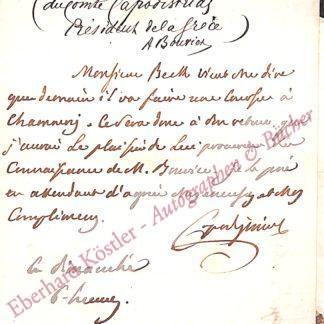 (du comte Capodistrias
Président de la Grèce
A Bouvier)
Monsieur Beck vient me dire
que demain il va faire une course à
Chamouny. Ce sera donc à son retour que
j'aurai le plaisir de lui procurer la
connaissance de M. Bouvier. Je le prie
en attendant d'agréer mes et mes
complimens
ce dimanche
6 heures
Eberhard Köstler - Autographen & Bücher